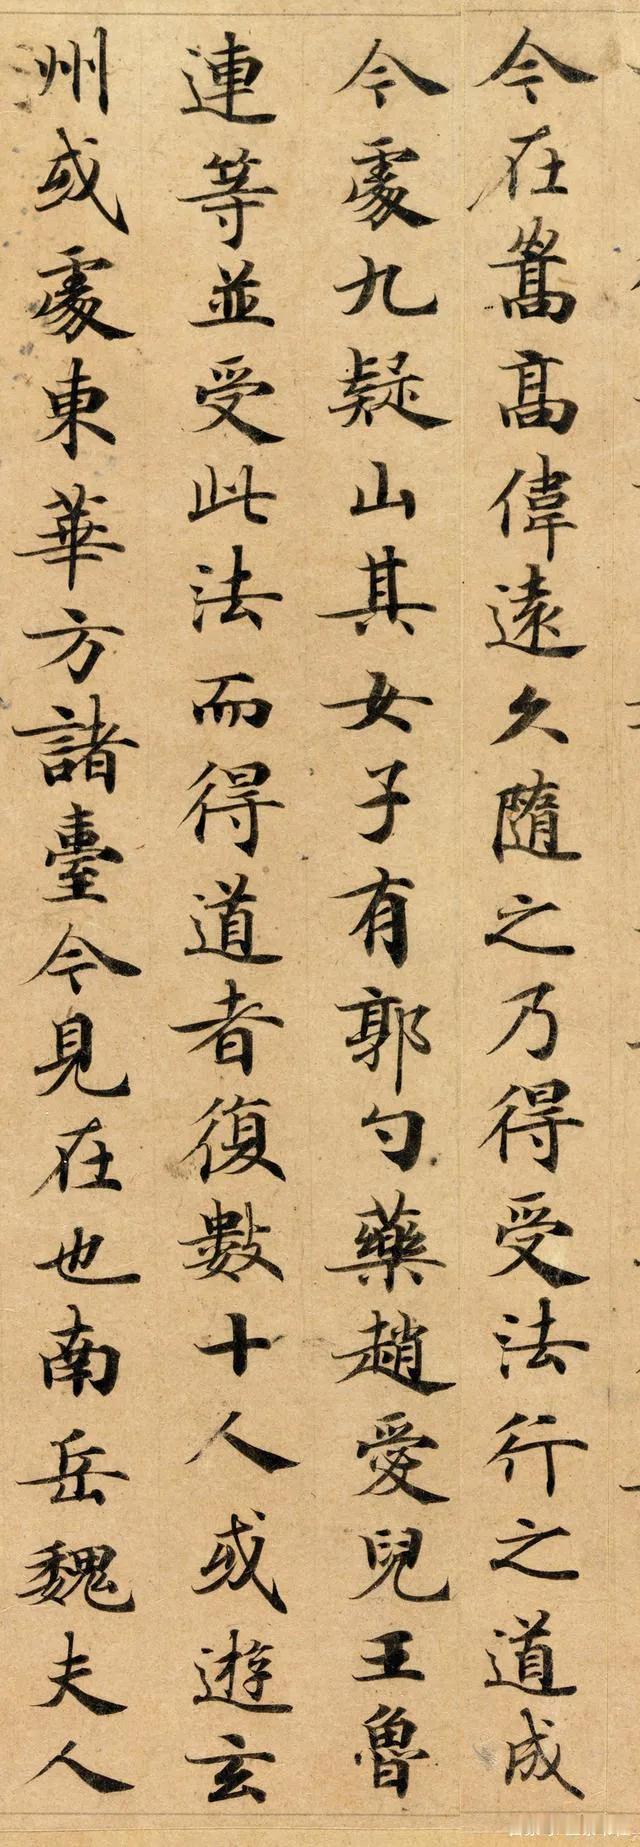 今在嵩高偉遠久隨之乃得受法行之道成
今處九疑山其女子有郭勺藥趙愛兒王魯
連等並受此法而得道者復數十人或遊玄
州或處東華方諸臺今見在也南岳魏夫人